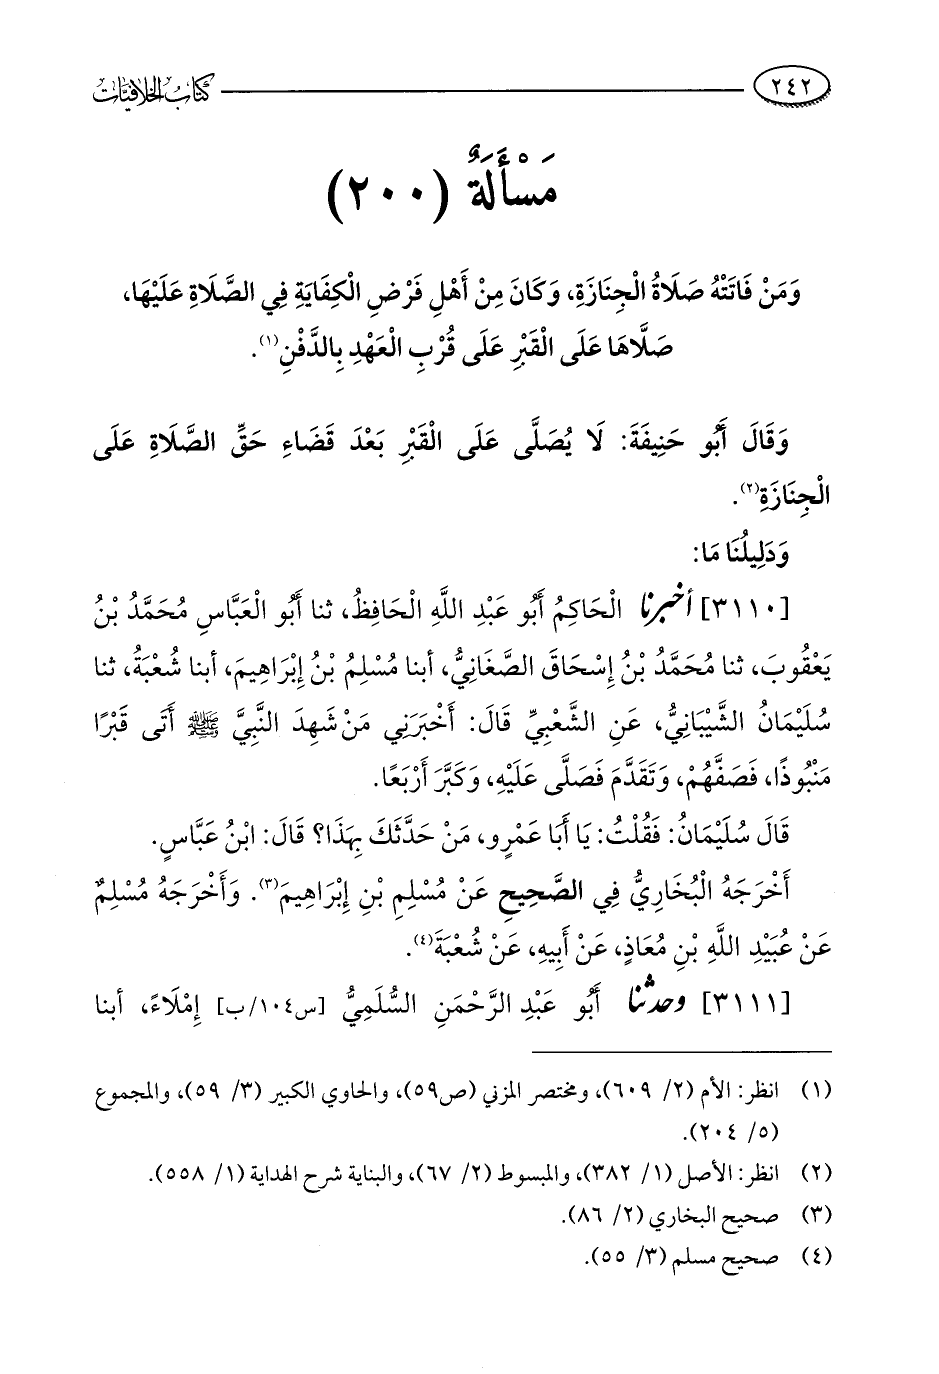 ٢٤٢ كتاب الخلافيات
مَسْأَلَةٌ (٢٠٠)
وَمَنْ فَاتَتْهُ صَلَاةُ الْجِنَازَةِ، وَكَانَ مِنْ أَهْلِ فَرْضِ الْكِفَايَةِ فِي الصَّلَاةِ عَلَيْهَا،
صَلَّاهَا عَلَى الْقَبْرِ عَلَى قُرْبِ الْعَهْدِ بِالدَّفْنِ(١).
وَقَالَ أَبُو حَنِيفَةَ: لَا يُصَلَّى عَلَى الْقَبْرِ بَعْدَ قَضَاءِ حَقِّ الصَّلَاةِ عَلَى
الْجِنَازَةِ(٢).
وَدَلِيلُنَا مَا:
[٣١١٠] أخبرنا الْحَاكِمُ أَبُو عَبْدِ اللَّهِ الْحَافِظُ، ثنا أَبُو الْعَبَّاسِ مُحَمَّدُ بْنُ
يَعْقُوبَ، ثنا مُحَمَّدُ بْنُ إِسْحَاقَ الصَّغَانِيُّ، أبنا مُسْلِمُ بْنُ إِبْرَاهِيمَ، أبنا شُعْبَةُ، ثنا
سُلَيْمَانُ الشَّيْبَانِيُّ، عَنِ الشَّعْبِيِّ قَالَ: أَخْبَرَنِي مَنْ شَهِدَ النَّبِيَّ ﷺ أَتَى قَبْرًا
مَنْبُوذًا، فَصَفَّهُمْ، وَتَقَدَّمَ فَصَلَّى عَلَيْهِ، وَكَبَّرَ أَرْبَعًا.
قَالَ سُلَيْمَانُ: فَقُلْتُ: يَا أَبَا عَمْرٍو، مَنْ حَدَّثَكَ بِهَذَا؟ قَالَ: ابْنُ عَبَّاسٍ.
أَخْرَجَهُ الْبُخَارِيُّ فِي الصَّحِيحِ عَنْ مُسْلِمِ بْنِ إِبْرَاهِيمَ(٣). وَأَخْرَجَهُ مُسْلِمٌ
عَنْ عُبَيْدِ اللَّهِ بْنِ مُعَاذٍ، عَنْ أَبِيهِ، عَنْ شُعْبَةَ(٤).
[٣١١١] وحدثنا أَبُو عَبْدِ الرَّحْمَنِ السُّلَمِيُّ [س١٠٤/ب] إِمْلَاءً، أبنا
(١) انظر: الأم (٢/ ٦٠٩)، ومختصر المزني (ص٥٩)، والحاوي الكبير (٣/ ٥٩)، والمجموع
(٥/ ٢٠٤).
(٢) انظر: الأصل (١/ ٣٨٢)، والمبسوط (٢/ ٦٧)، والبناية شرح الهداية (١/ ٥٥٨).
(٣) صحيح البخاري (٢/ ٨٦).
(٤) صحيح مسلم (٣/ ٥٥).